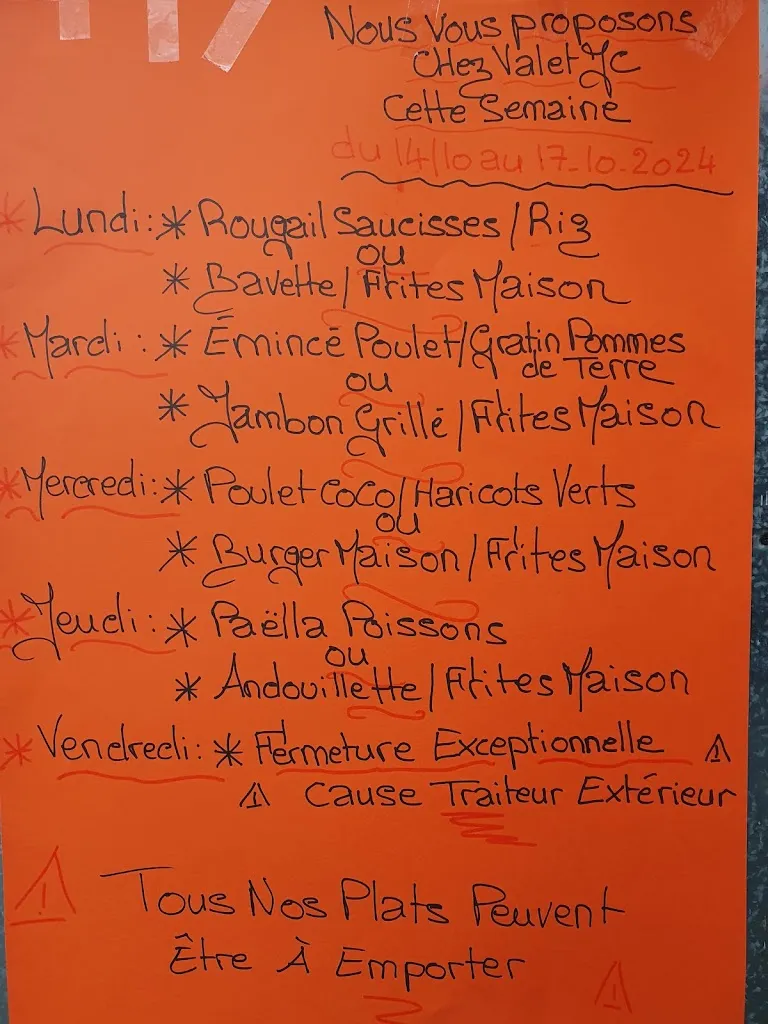 Nous Vous proposons
Chez Valet JC
Cette Semaine
du 14/10 au 17-10-2024
* Lundi : * Rougail Saucisses / Riz
ou
* Bavette / Frites Maison
* Mardi : * Émincé Poulet / Gratin Pommes
de Terre
ou
* Jambon Grillé / Frites Maison
* Mercredi : * Poulet Coco / Haricots Verts
ou
* Burger Maison / Frites Maison
* Jeudi : * Paëlla Poissons
ou
* Andouillette / Frites Maison
* Vendredi : * Fermeture Exceptionnelle ⚠
⚠ Cause Traiteur Extérieur
Tous Nos Plats Peuvent
Être À Emporter